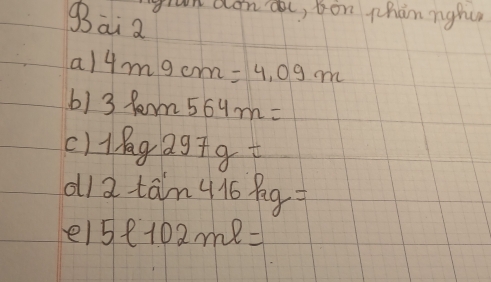 đơn đọc, bốn phần nghìn
Bài 2
a) 4m 9cm = 4,09 m
b) 3 km 564m =
c) 1kg 297g =
d) 2 tấn 416 kg =
e) 5l 102ml =